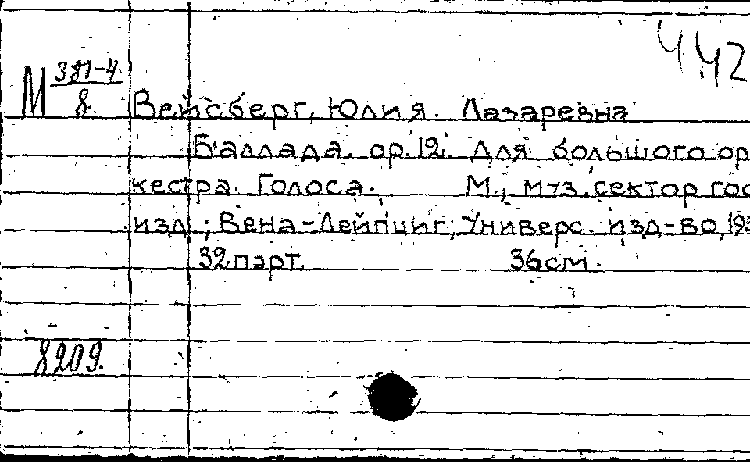 442
М 381-4/8
Вейсберг, Юлия Лазаревна
Баллада. ор.12. Для большого ор
кестра. Голоса. М., муз.сектор гос
изд.; Вена-Лейпциг, Универс. изд-во, 19
32парт. 36см.
8209.